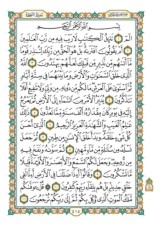 بِسْمِ اللَّهِ الرَّحْمَٰنِ الرَّحِيمِ
الٓمٓ تَنزِيلُ الْكِتَٰبِ لَا رَيْبَ فِيهِ مِن رَّبِّ الْعَٰلَمِينَ
أَمْ يَقُولُونَ افْتَرَىٰهُ بَلْ هُوَ الْحَقُّ مِن رَّبِّكَ لِتُنذِرَ قَوْمًا
مَّا أَتَىٰهُم مِّن نَّذِيرٍ مِّن قَبْلِكَ لَعَلَّهُمْ يَهْتَدُونَ اللَّهُ
الَّذِي خَلَقَ السَّمَٰوَٰتِ وَالْأَرْضَ وَمَا بَيْنَهُمَا فِي سِتَّةِ أَيَّامٍ
ثُمَّ اسْتَوَىٰ عَلَى الْعَرْشِ مَا لَكُم مِّن دُونِهِ مِن وَلِيٍّ وَلَا شَفِيعٍ أَفَلَا
تَتَذَكَّرُونَ يُدَبِّرُ الْأَمْرَ مِنَ السَّمَاءِ إِلَى الْأَرْضِ ثُمَّ يَعْرُجُ
إِلَيْهِ فِي يَوْمٍ كَانَ مِقْدَارُهُ أَلْفَ سَنَةٍ مِّمَّا تَعُدُّونَ ذَٰلِكَ
عَٰلِمُ الْغَيْبِ وَالشَّهَٰدَةِ الْعَزِيزُ الرَّحِيمُ الَّذِي أَحْسَنَ
كُلَّ شَيْءٍ خَلَقَهُ وَبَدَأَ خَلْقَ الْإِنسَٰنِ مِن طِينٍ ثُمَّ جَعَلَ
نَسْلَهُ مِن سُلَٰلَةٍ مِّن مَّاءٍ مَّهِينٍ ثُمَّ سَوَّىٰهُ وَنَفَخَ فِيهِ
مِن رُّوحِهِ وَجَعَلَ لَكُمُ السَّمْعَ وَالْأَبْصَٰرَ وَالْأَفْئِدَةَ قَلِيلًا
مَّا تَشْكُرُونَ وَقَالُوا أَءِذَا ضَلَلْنَا فِي الْأَرْضِ أَءِنَّا لَفِي
خَلْقٍ جَدِيدٍ بَلْ هُم بِلِقَاءِ رَبِّهِمْ كَٰفِرُونَ قُلْ يَتَوَفَّىٰكُم
مَّلَكُ الْمَوْتِ الَّذِي وُكِّلَ بِكُمْ ثُمَّ إِلَىٰ رَبِّكُمْ تُرْجَعُونَ
٤١٥